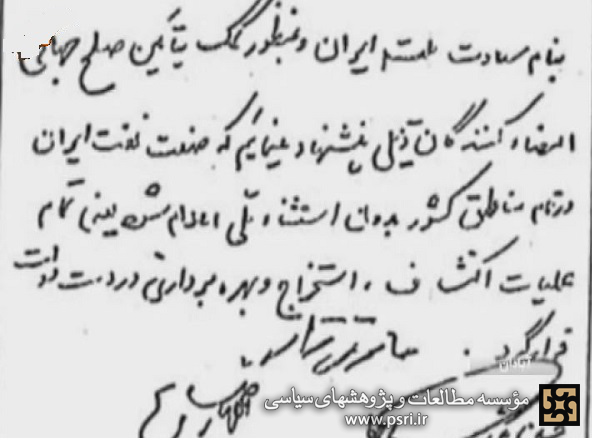 بنام سعادت ملت ایران و بمنظور کمک بتأمین صلح جهانی
امضاء کنندگان ذیل پیشنهاد مینمائیم که صنعت نفت ایران
در تمام مناطق کشور بدون استثناء ملی اعلام شود یعنی تمام
عملیات اکتشاف، استخراج و بهره برداری در دست دولت
قرار گیرد.
مؤسسه مطالعات و پژوهشهای سیاسی
www.psri.ir